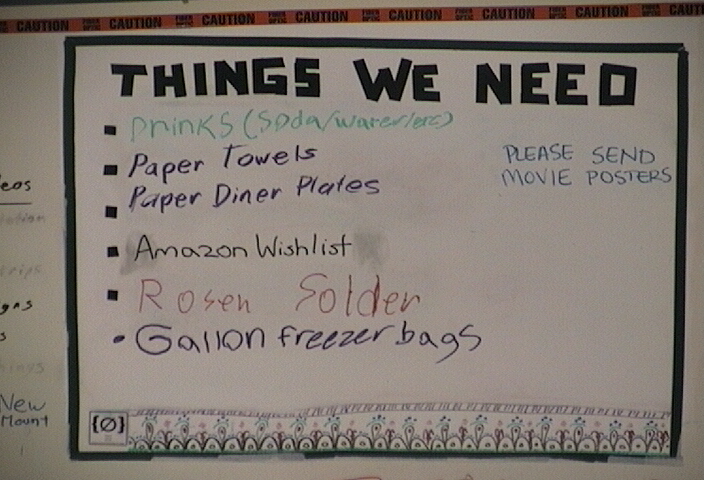 CAUTION CAUTION CAUTION CAUTION CAUTION CAUTION CAUTION
THINGS WE NEED
Drinks (Soda/water/etc)
Paper Towels
Paper Diner Plates
Amazon Wishlist
Rosen Solder
Gallon freezer bags
PLEASE SEND
MOVIE POSTERS
{Ø}
eos
gns
s
New
Mount